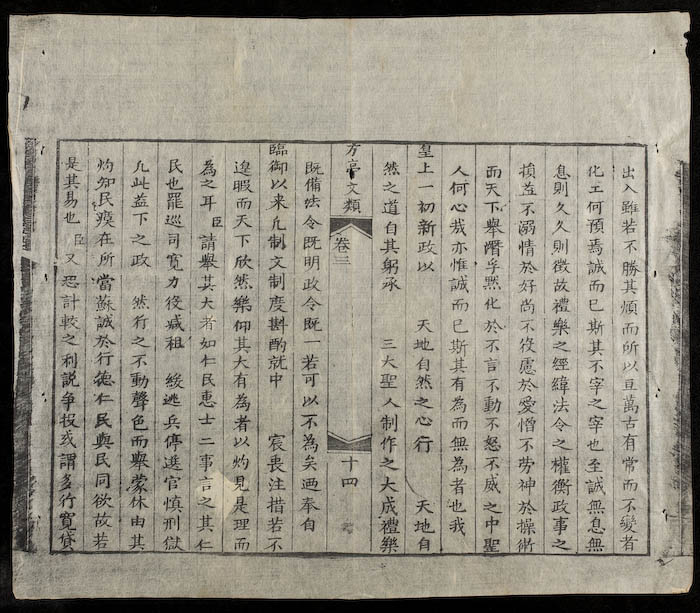 出入雖若不勝其煩而所以亘萬古有常而不變者
化工何預焉誠而已斯其不宰之宰也至誠無息無
息則久久則徵故禮樂之經緯法令之權衡政事之
損益不溺情於好尚不役慮於愛憎不劳神於操術
而天下舉潛孚黙化於不言不動不怒不威之中聖
人何心哉亦惟誠而已斯其有為而無為者也我
皇上一初新政以 天地自然之心行 天地自
然之道自其躬承 三大聖人制作之大成禮樂
方亭文類 卷三 十四
既備法令既明政令既一若可以不為矣廼奉自
臨御以来凢制文制度斟酌就中 宸衷注措若不
遑暇而天下欣然樂仰其大有為者以灼見是理而
為之耳臣請舉其大者如仁民惠士二事言之其仁
民也罷巡司寬力役减租 綏逃兵停選官慎刑獄
凢此益下之政 然行之不動聲色而舉蒙休由其
灼知民瘼在所當蘇誠於行德仁民與民同欲故若
是其易也臣又恐計較之利説争投或謂多行寬貸